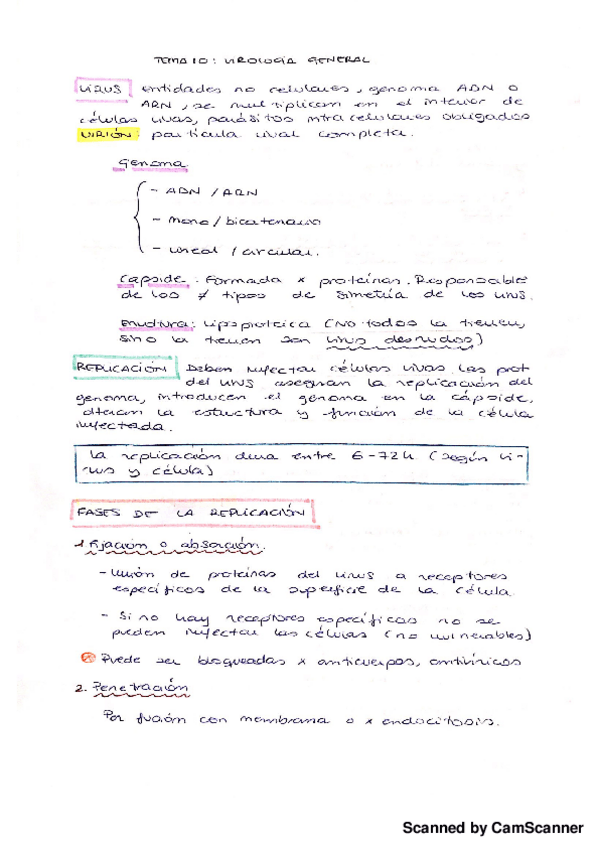 TEMA 10: VIROLOGÍA GENERAL
VIRUS entidades no celulares, genoma ADN o
ARN, se multiplican en el interior de
células vivas, parásitos intracelulares obligados
VIRIÓN: partícula viral completa.
Genoma
- ADN / ARN
- mono / bicatenario
- lineal / circular.
Capside: Formada x proteínas. Responsable
de los ≠ tipos de simetría de los virus.
Envoltura: lipoproteica (No todos la tienen,
sino la tienen son virus desnudos)
REPLICACIÓN Deben infectar células vivas. Las prot
del virus aseguran la replicación del
genoma, introducen el genoma en la cápside,
alteran la estructura y función de la célula
infectada.
La replicación dura entre 6-72h (según vi-
rus y célula)
FASES DE LA REPLICACIÓN
1. Fijación o absorción.
- Unión de proteínas del virus a receptores
específicos de la superficie de la célula.
- Si no hay receptores específicos no se
pueden infectar las células (no vulnerables)
Puede ser bloqueadas x anticuerpos, antivíricos
2. Penetración
Por fusión con membrana o x endocitosis.
Scanned by CamScanner